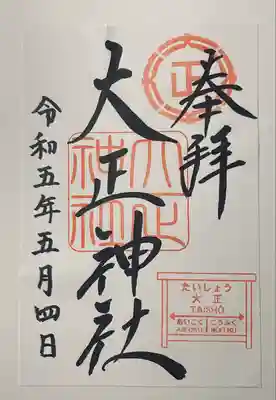 奉拝
正
大正神社
大正
神社
たいしょう
大正
TAISHŌ
あいこく
こうふく
令和五年五月四日